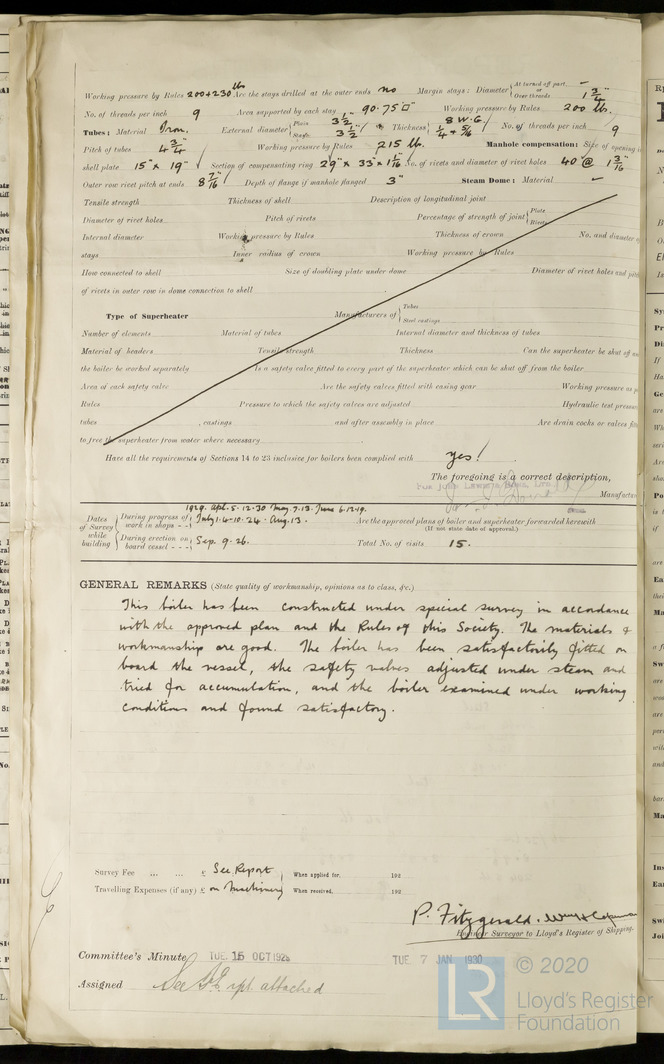 Working pressure by Rules 200+230 lbs Are the stays drilled at the outer ends no Margin stays: Diameter { At turned off part, — or Over threads 1 3/4"
No. of threads per inch 9 Area supported by each stay 90.75 □" Working pressure by Rules 200 lb.
Tubes: Material Iron. External diameter { Plain 3 1/2" Stays 3 1/2" Thickness { 8 W.G. 1/4 + 5/16 No. of threads per inch 9
Pitch of tubes 4 3/4" Working pressure by Rules 215 lb. Manhole compensation: Size of opening in
shell plate 15" x 19" Section of compensating ring 29" x 33" x 1 1/16" No. of rivets and diameter of rivet holes 40 @ 1 3/16"
Outer row rivet pitch at ends 8 7/16" Depth of flange if manhole flanged 3" Steam Dome: Material —
Tensile strength Thickness of shell Description of longitudinal joint
Diameter of rivet holes Pitch of rivets Percentage of strength of joint { Plate Rivets
Internal diameter Working pressure by Rules Thickness of crown No. and diameter of
stays Inner radius of crown Working pressure by Rules
How connected to shell Size of doubling plate under dome Diameter of rivet holes and pitch
of rivets in outer row in dome connection to shell
Type of Superheater Manufacturers of { Tubes Steel castings
Number of elements Material of tubes Internal diameter and thickness of tubes
Material of headers Tensile strength Thickness Can the superheater be shut off and
the boiler be worked separately Is a safety valve fitted to every part of the superheater which can be shut off from the boiler
Area of each safety valve Are the safety valves fitted with easing gear Working pressure as per
Rules Pressure to which the safety valves are adjusted Hydraulic test pressure
tubes , castings and after assembly in place Are drain cocks or valves fitted
to free the superheater from water where necessary
Have all the requirements of Sections 14 to 23 inclusive for boilers been complied with Yes!
The foregoing is a correct description,
Manufacturer
Dates of Survey while building { During progress of work in shops - - { 1929. Apl. 5. 12. 30 May. 7. 13. June 6. 12. 19. July 1. 4. 10. 24. Aug. 13. Are the approved plans of boiler and superheater forwarded herewith
(If not state date of approval.)
During erection on board vessel - - - { Sep. 9. 26. Total No. of visits 15.
GENERAL REMARKS (State quality of workmanship, opinions as to class, &c.)
This boiler has been constructed under special survey in accordance
with the approved plan and the Rules of this Society. The materials &
workmanship are good. The boiler has been satisfactorily fitted on
board the vessel, the safety valves adjusted under steam and
tried for accumulation, and the boiler examined under working
conditions and found satisfactory.
Survey Fee ... ... £ See Report } When applied for, 192
Travelling Expenses (if any) £ on Machinery } When received, 192
P. Fitzgerald.
Engineer Surveyor to Lloyd's Register of Shipping.
Committee's Minute TUE. 15 OCT 192 TUE 7 JAN 1930
Assigned See rpt. attached
LR © 2020
Lloyd's Register
Foundation